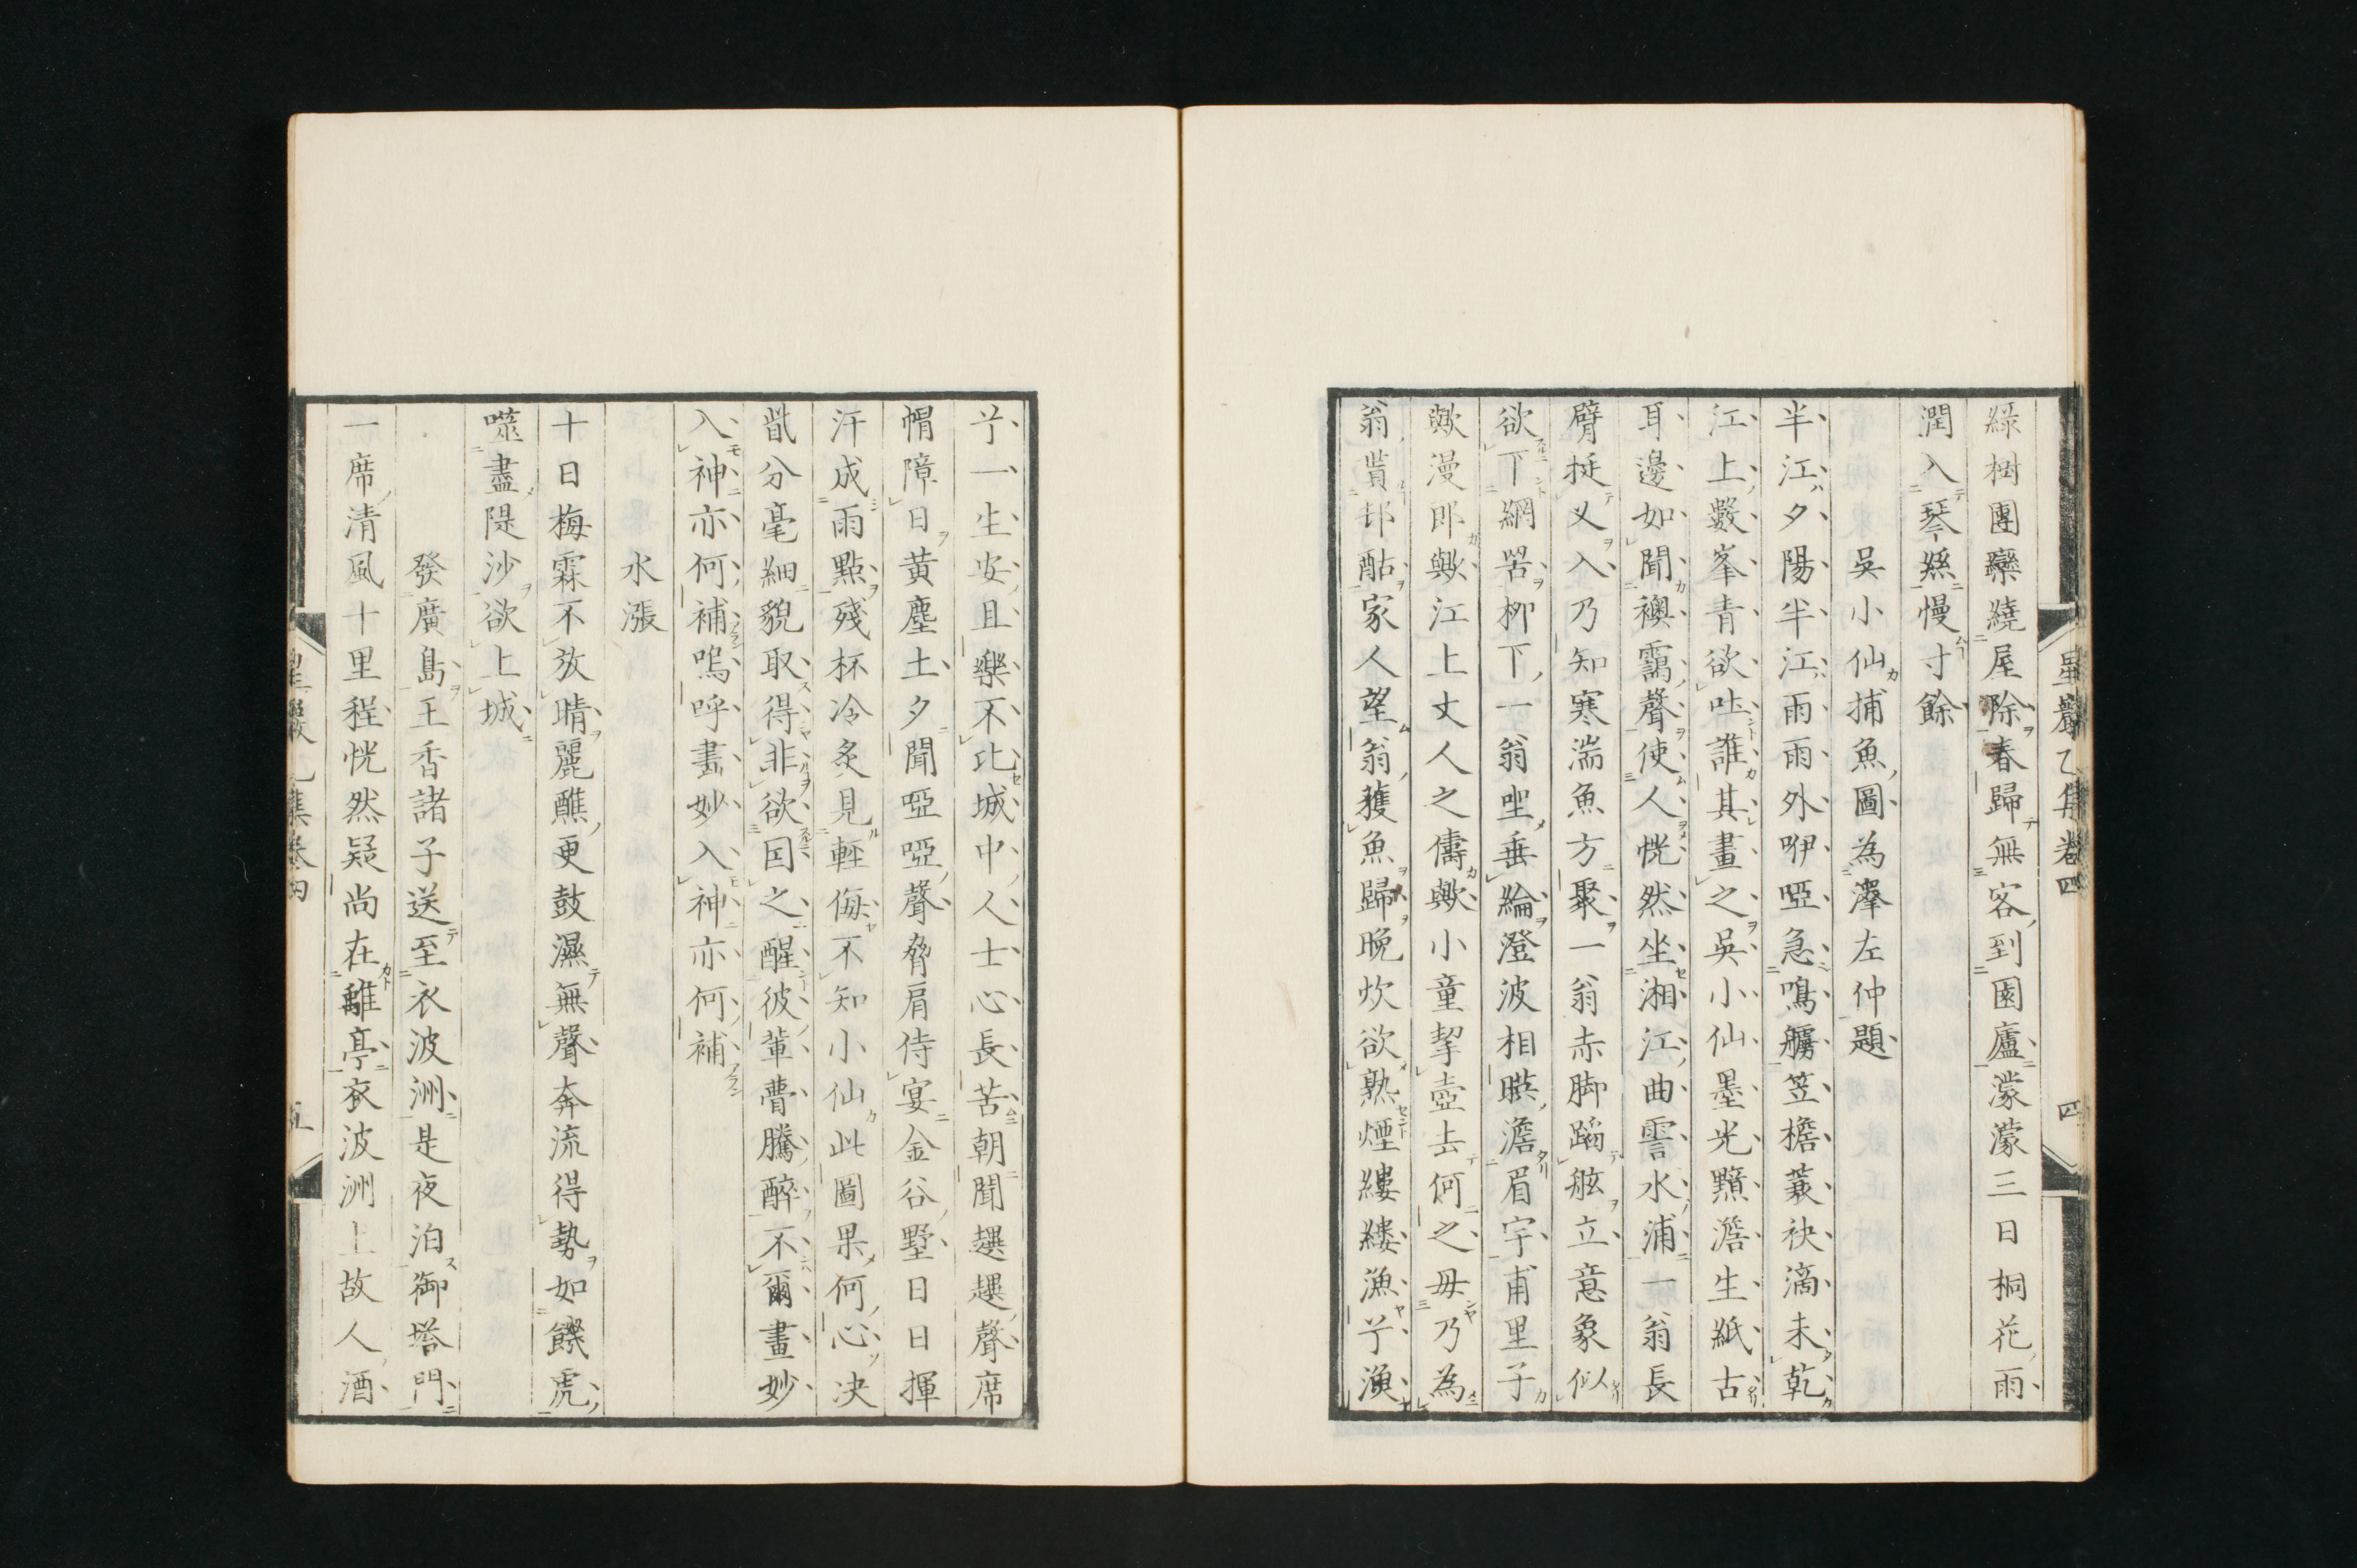 星巖乙集卷四
四
綠樹團欒繞屋除春歸無客到園廬濛濛三日桐花雨
潤入琴絲慢寸餘
吳小仙捕魚圖為澤左仲題
半江夕陽半江雨雨外咿啞急鳴艣笠檐蓑袂滴未乾
江上數峯青欲吐誰其畫之吳小仙墨光黯澹生紙古
耳邊如聞襖靄聲使人恍然坐湘江曲霅水浦一翁長
臂挺叉入乃知寒湍魚方聚一翁赤脚蹈舷立意象似
欲下綱罟柳下一翁坐垂綸澄波相暎澹眉宇甫里子
歟漫郎歟江上丈人之儔歟小童挈壺去何之毋乃為
翁貰邨酤家人望翁獲魚歸晚炊欲熟煙縷縷漁兮漁
兮一生安且樂不比城中人士心長苦朝聞趯趯聲席
帽障日黃塵土夕聞啞啞聲脅肩侍宴金谷墅日日揮
汗成雨點殘杯冷炙見輕侮不知小仙此圖果何心決
眥分毫細貌取得非欲因之醒彼輩瞢騰醉不爾畫妙
入神亦何補嗚呼畫妙入神亦何補
水漲
十日梅霖不放晴麗醮更鼓濕無聲奔流得勢如饑虎
噬盡隄沙欲上城
發廣島王香諸子送至衣波洲是夜泊御塔門
一席清風十里程恍然疑尚在離亭衣波洲上故人酒
五